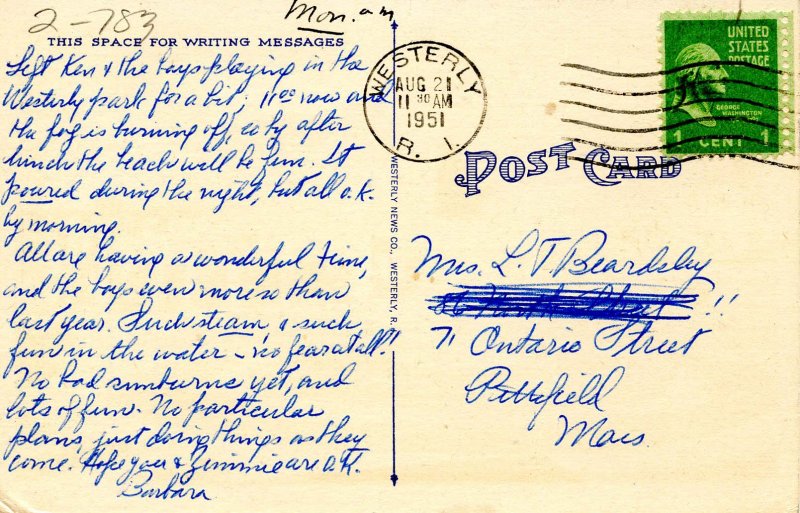 2-783
Mon. am
THIS SPACE FOR WRITING MESSAGES
Left Ken & the boys playing in the
Westerly park for a bit; 11:00 now and
the fog is burning off, so by after
lunch the beach will be fun. It
poured during the night, but all o.k.
by morning.
All are having a wonderful time,
and the boys even more so than
last year. Such steam, & such
fun in the water - no fear at all!
No bad sunburns yet, and
lots of fun. No particular
plans, just doing things as they
come. Hope you & Zimmie are O.K.
Barbara
WESTERLY NEWS CO., WESTERLY, R.I.
WESTERLY
AUG 21
11 30 AM
1951
R. I.
UNITED
STATES
POSTAGE
GEORGE
WASHINGTON
1 CENT 1
POST CARD
Mrs. L. T. Beardsley
86 North Street !!
71 Ontario Street
Pittsfield
Mass.